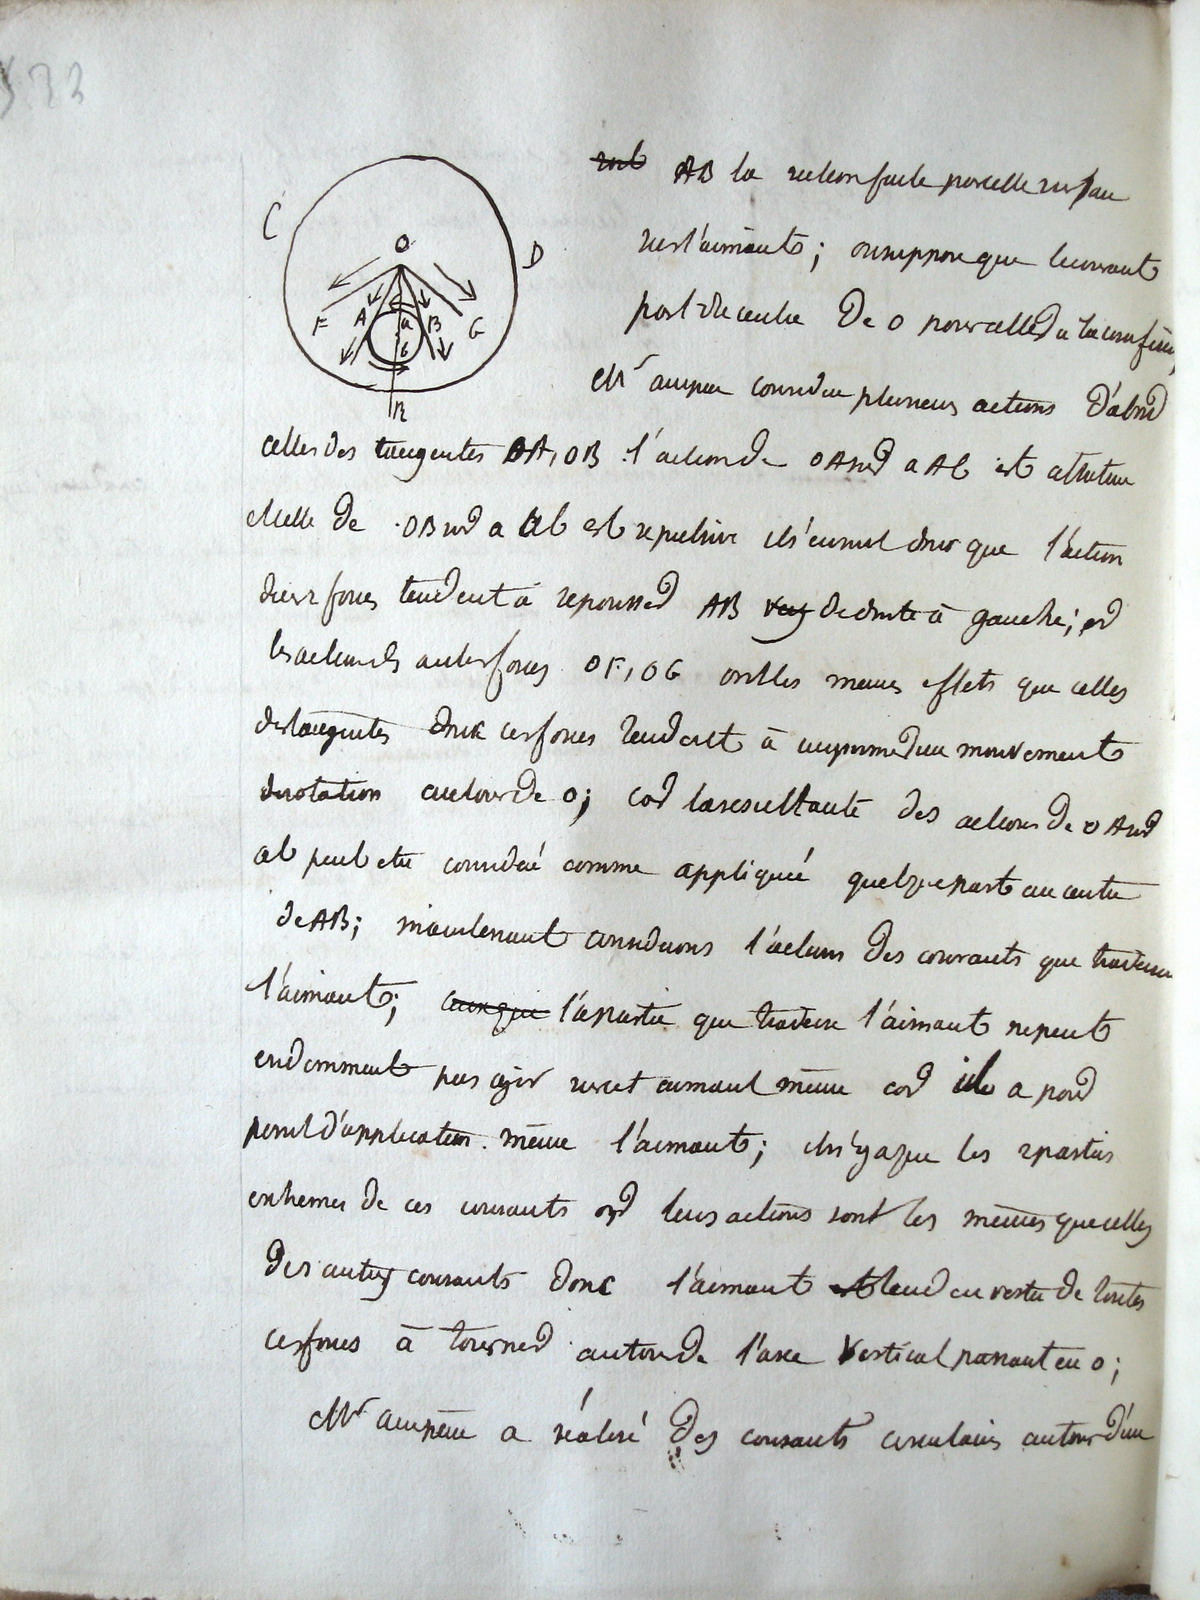 C
O
D
F
A
a
B
G
b
R
soit AB la section faite par celle surface
sur l'aimant; on suppose que le courant
part du centre De O pour aller a la
Mr ampere considere plusieurs actions D'abord
celles des tangentes OA, OB l'action de OA sur aAb est attractive
et celle de OB sur aBb est repulsive il s'ensuit donc que l'action
des 2 forces tendent à repousser AB de droite à gauche;
les actions des autres forces OF, OG ont les memes effets que celles
des tangentes donc ces forces tendent à imprimer un mouvement
de rotation autour de O; car la resultante des actions de OA sur
ab peut etre considéré comme appliqueé quelque part au centre
de AB; maintenant considerons l'action des courants que traverse
l'aimant; la partie que traverse l'aimant ne peut
evidemment pas agir sur cet aimant même car il a pour
point d'application même l'aimant; il n'y a que les 2 parties
extremes de ces courants or leurs actions sont les mêmes que celles
Des autres courants donc l'aimant tend en vertu de toutes
ces forces à tourner autour de l'axe vertical passant en O;
Mr ampère a réalisé Des courants circulaires autour d'un